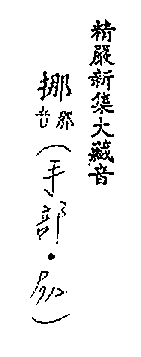 精嚴新集大藏音
挪(手部・)